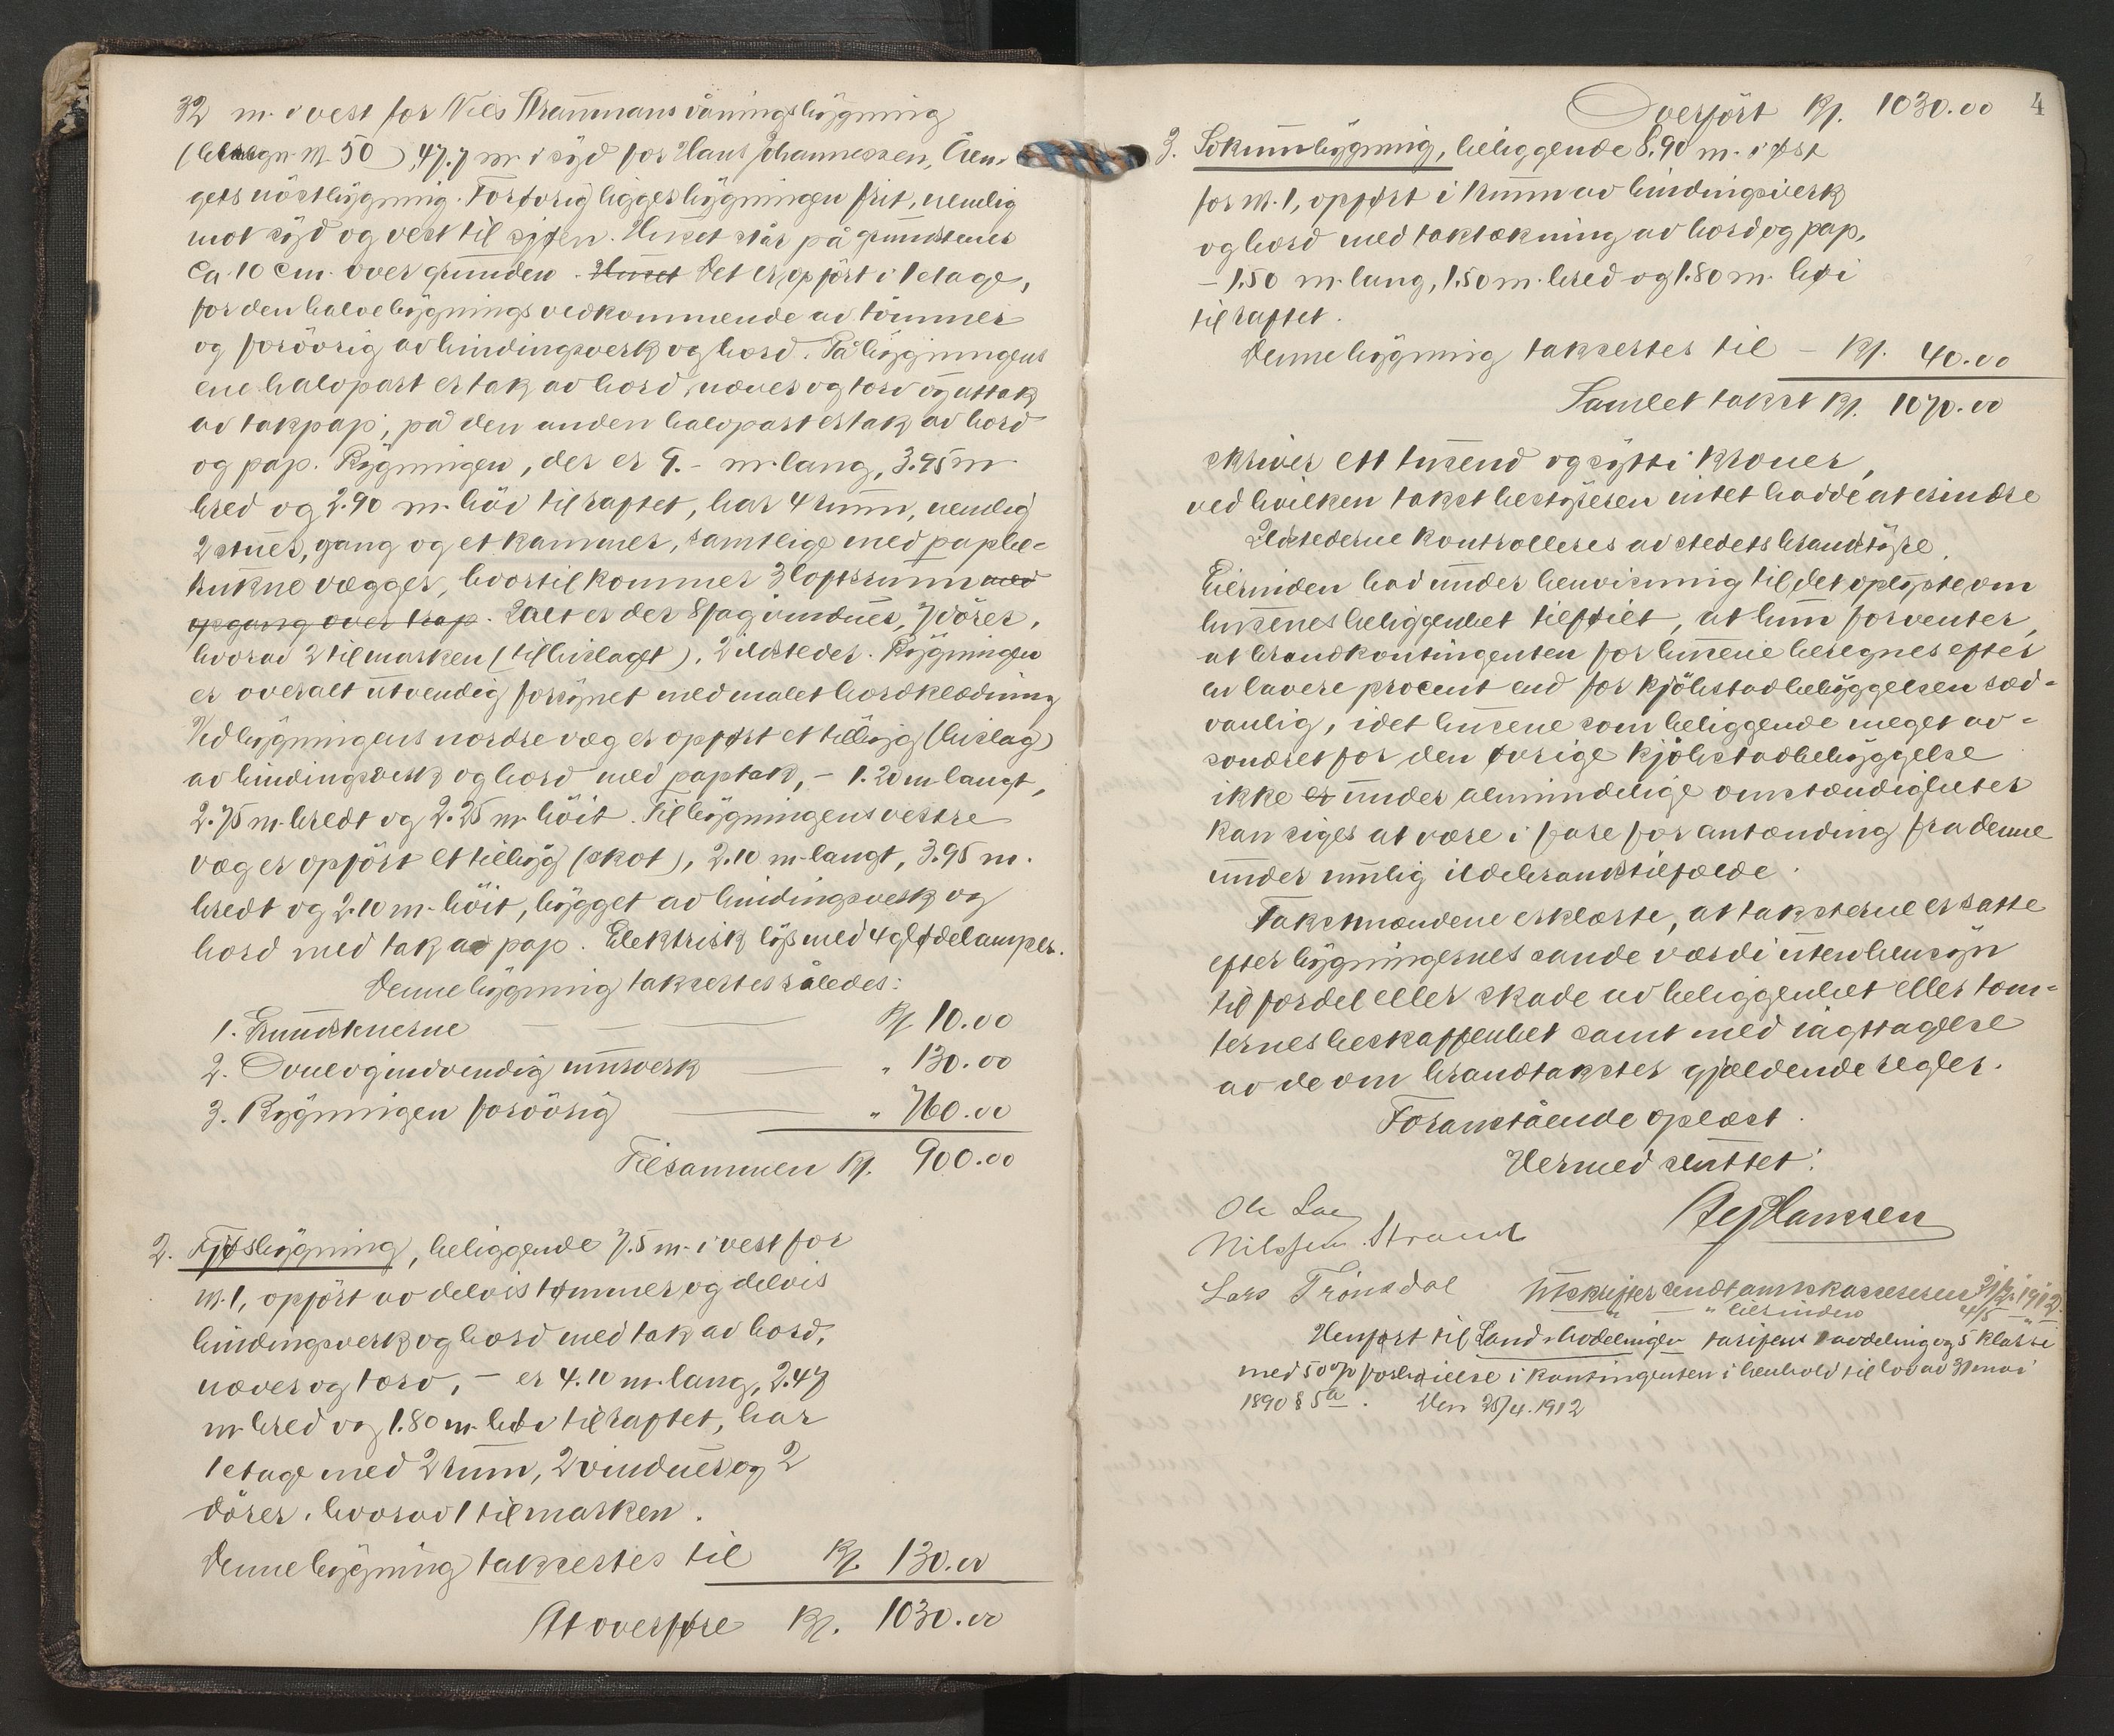 32 m. i vest for Nils Strammans våningsbygning
(br.tegn. № 50), 47.7 m. i syd for Hans Johannessen, Øren-
gets nöstbygning. Forövrig ligger bygningen frit, nemlig
mot syd og vest til sjøen. Huset står på grundstener
ca. 10 cm. over grunden. Huset Det er opfört i 1 etage,
for den halve bygnings vedkommende av tömmer
og forövrig av bindingsverk og bord. På bygningens
ene halvpart er tak av bord, næver og torv og attak
av takpap; på den anden halvpart er tak av bord
og pap. Bygningen, der er 9.- m. lang, 3.95 m
bred og 2.90 m. höi til raftet, har 4 rum, nemlig
2 stuer, gang og et kammer, samtlige med papbe-
trukne vægger, hvortil kommer 3 loftsrum med
opgang over trap. Ialt er der 8 fag vinduer, 7 dörer,
hvorav 2 til marken (til bislaget), 2 ildsteder. Bygningen
er overalt utvendig forsynet med malet bordklædning
Ved bygningens nordre væg er opført et tilbyg (bislag)
av bindingsverk og bord med paptak, - 1.20 m. langt,
2.75 m. bredt og 2.25 m. höit. Til bygningens vestre
væg er opfört et tilbyg (skot), 2.10 m. langt, 3.95 m.
bredt og 2.10 m. höit, bygget av bindingsverk og
bord med tak av pap. Elektrisk lys med 4 glødelamper.
Denne bygning taksertes således:
1. Grundstenerne Kr. 10.00
2. Ovne og indvendig murverk " 130.00
3. Bygningen forövrig " 760.00
Tilsammen Kr. 900.00
2. Fjøsbygning, beliggende 7.5 m. i vest for
№. 1, opfört av delvis tømmer og delvis
bindingsverk og bord med tak av bord,
næver og torv, - er 4.10 m. lang, 2.47
m. bred og 1.80 m. høi til raftet, har
1 etage med 2 rum, 2 vinduer og 2
dörer, hvorav 1 til marken.
Denne bygning taksertes til Kr. 130.00
At overføre Kr. 1030.00
4
Overfört Kr. 1030.00
3. Sokumbygning, beliggende 8.90 m. i øst
for №. 1, opført i 1 rum av bindingsverk
og bord med taktækning av bord og pap,
- 1.50 m. lang, 1.50 m. bred og 1.80 m. høi
til raftet.
Denne bygning taksertes til - Kr. 40.00
Samlet takst Kr. 1070.00
skriver ett tusend og sytti kroner,
ved hvilken takst bestyreren intet hadde at erindre
Ildstederne kontrolleres av stedets brandstyre.
Eierinden bad under henvisning til det oplyste om
husenes beliggenhet tilføiet, at hun forventer,
at brandkontingenten for husene beregnes efter
en lavere procent end for kjöbstadbebyggelsen sæd-
vanlig, idet husene som beliggende meget av-
sondret for den øvrige kjöbstadbebyggelse
ikke er under almindelige omstændigheter
kan siges at være i fare for antænding fra denne
under mulig ildebrandstilfælde.
Takstmændene erklærte, at taksterne er satte
efter bygningernes sande værdi uten hensyn
til fordel eller skade av beliggenhet eller tom-
ternes beskaffenhet samt med iagttagelse
av de om brandtakster gjældende regler.
Foranstående oplæst.
Hermed sluttet.
Ole
Nilsen Strand
Hanssen
Lars Trönsdal
Utskrifter sendt amtskassereren 1912.
" " eierinden 4/5 "
Henført til Landsavdelingen tarifens avdeling og 5 klasse
med 50 % forhøielse i kontingenten i henhold til lov av 31 mai
1890 § 5 a. Den 25/4. 1912